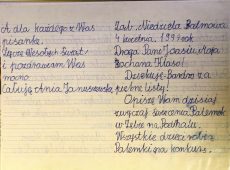 A dla każdego z Was
pisanka.
Życzę Wesołych Świąt
i pozdrawiam Was
mocno.
Całuję Ania Januszewska
Zab. Niedziela Palmowa
kwietnia, 1994 rok
Droga Pani Joasiu, Moja
Kochana Klaso!
Dziękuję Bardzo za
piękne listy!
Opiszę Wam dzisiaj
zwyczaj święcenia Palemek
w Zębie na Podhalu.
Wszystkie dzieci robią
Palemki na konkurs.